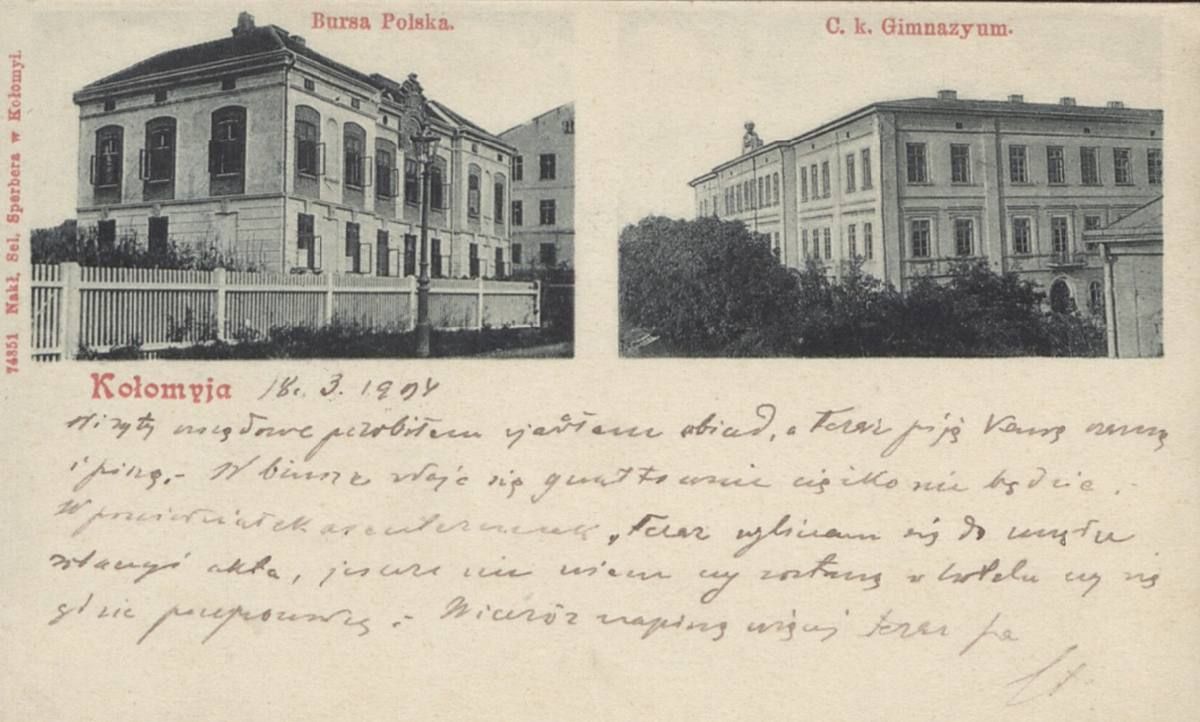 Bursa Polska.
C. k. Gimnazyum.
74351 Nakł. Sel. Sperbera w Kołomyi.
Kołomyja 18. 3. 1904
Wizyty urzędowe porobiłem zjadłem obiad, a teraz piję kawę czarną
i piszę.- W biurze zdaje się gwałtownie ciężko nie będzie.-
W poniedziałek teraz wybieram się do urzędu
akta, jeszcze nie wiem czy zostanę w hotelu czy się
gdzie przeprowadzę.- Wieczór napiszę więcej teraz pa